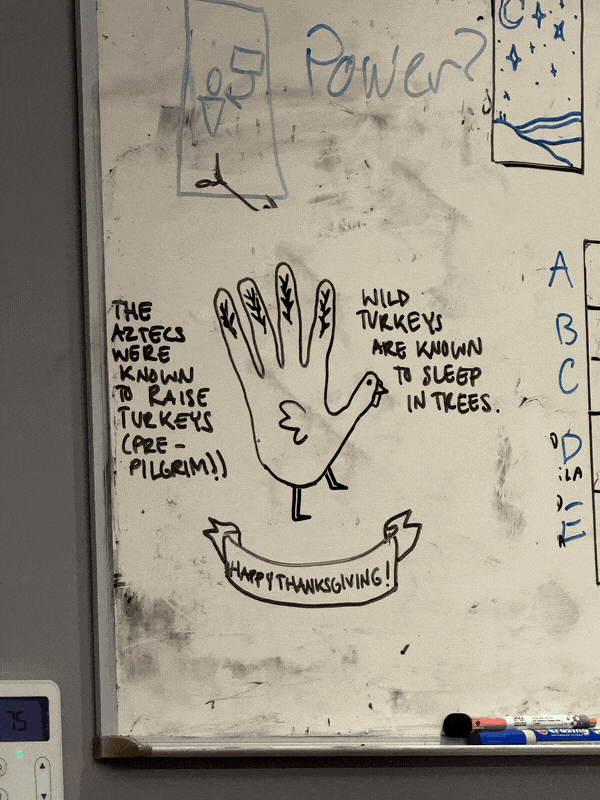 Power?
THE
AZTECS
WERE
KNOWN
TO RAISE
TURKEYS
(PRE-
PILGRIM!)
WILD
TURKEYS
ARE KNOWN
TO SLEEP
IN TREES.
HAPPY THANKSGIVING!
A
B
C
D
iLA
E
75